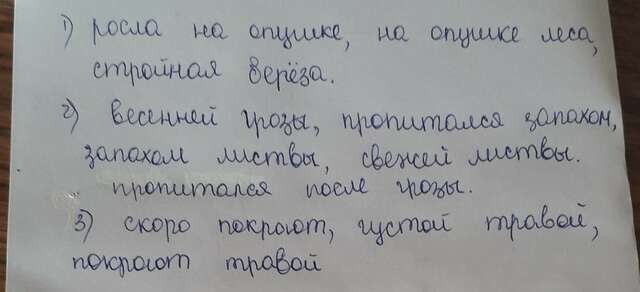 1) росла на опушке, на опушке леса,
стройная берёза.
2) весенней грозы, пропитался запахом,
запахом листвы, свежей листвы.
пропитался после грозы.
3) скоро покроют, густой травой,
покроют травой